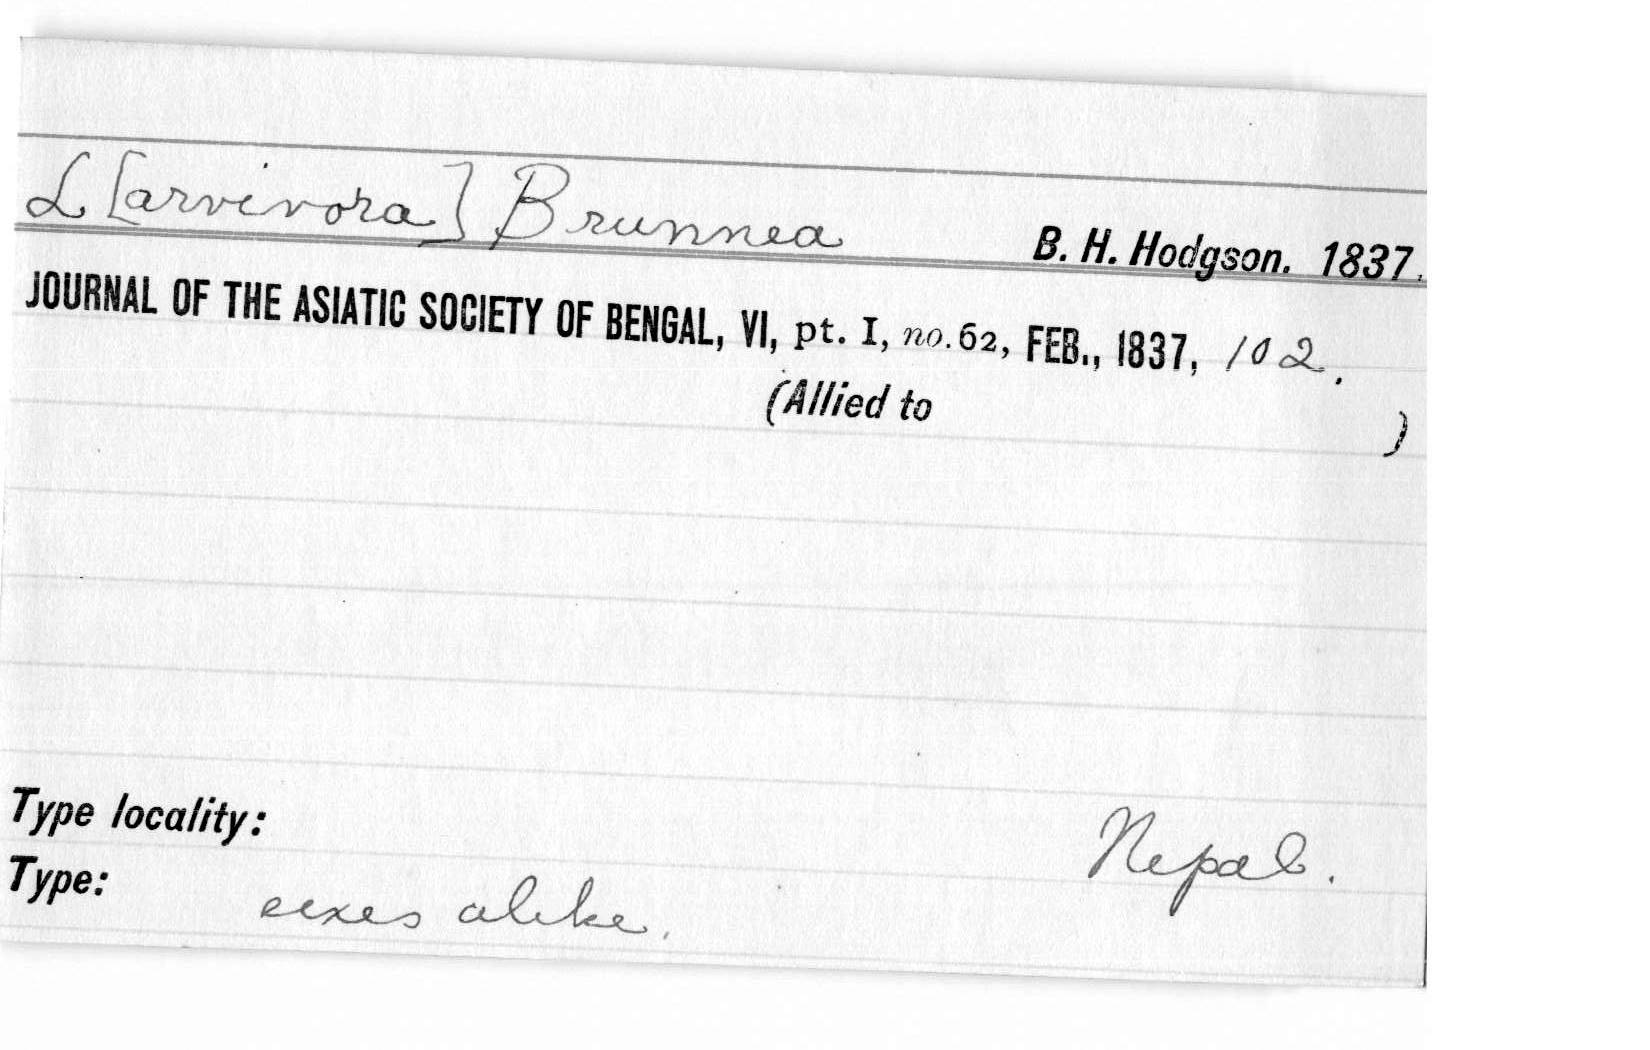 L[arvivora] Brunnea B. H. Hodgson. 1837.
JOURNAL OF THE ASIATIC SOCIETY OF BENGAL, VI, pt. I, no. 62, FEB., 1837, 102.
(Allied to )
Type locality: Nepal.
Type: sexes alike.